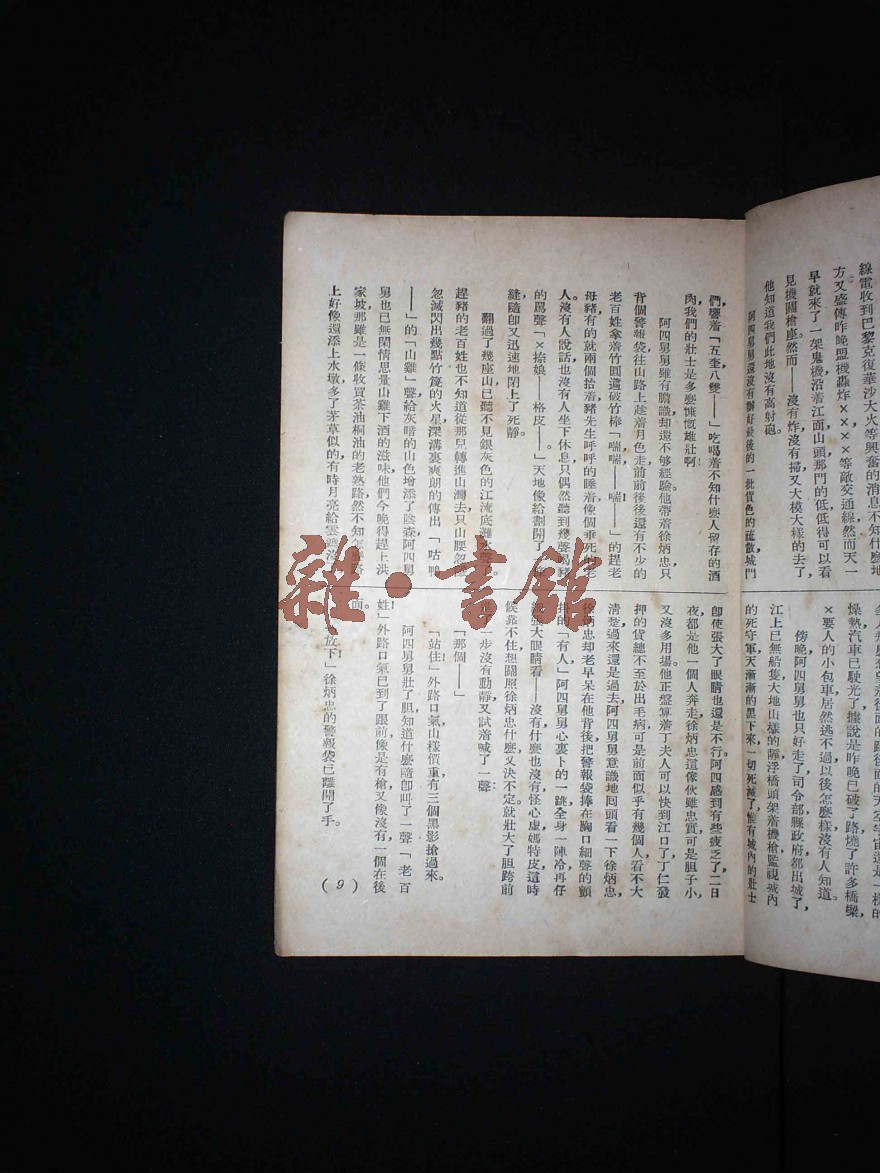 線電收到巴黎克復華沙大火等興奮的消息不知什麼地
方又盛傳昨晚盟機轟炸××××等敵交通線然而天一
早就來了一架鬼機沿着江面山頭那門的低低得可以看
見機關槍座。然而——沒有炸沒有掃又大模大樣的去了,
他知道我們此地沒有高射砲。
阿四舅舅還沒有辦好最後的一批貨色的疏散城門
燥熱汽車已駛光了據說是昨晚已破了路燒了許多橋樑,
×要人的小包車居然逃不過以後怎麼樣沒有人知道。
傍晚阿四舅舅也只好走了司令部縣政府都出城了,
江上已無船隻大地山樣的靜浮橋頭架着機槍監視城內
的死守軍天漸漸的黑下來一切死滅了惟有城內的壯士
們響着「五奎,八雙——」吃喝着不知什麼人留存的酒
肉我們的壯士是多麼慷慨雄壯啊!
阿四舅舅雖有膽識却還不够經驗。他帶着徐炳忠,只
背個警報袋往山路上趁着月色走前前後後還有不少的
老百姓拿着竹圓邊破竹棒「喘喘——喘——」的趕老
母豬有的就兩個抬着豬先生呼呼的睡着像個垂死的老
人。沒有人說話也沒有人坐下休息只偶然聽到幾聲喝豬
的罵聲「×捺娘——格皮——。」天地像給劃開了一條
縫隨即又迅速地閉上了死靜。
翻過了幾座山已聽不見銀灰色的江流底灘水聲了。
趕豬的老百姓也不知道從那兒轉進山灣去只山腰忽隱
忽滅閃出幾點竹篾的火星深溝裏爽朗的傳出「咕鴨
——」的「山雞」聲給灰暗的山色增添了陰森阿四舅
舅也已無閑情思量山雞下酒的滋味他們今晚得趕上洪
家坡那雖是一條收買茶油桐油的老熟路然不知怎麼路
上好像還添上水墩多了茅草似的有時月亮給雲遮沒
即使張大了眼睛也還是不行。阿四感到有些疲乏了二日
夜都是他一個人奔走徐炳忠這傢伙雖忠實可是胆子小
又沒多用場。他正盤算着丁夫人可以快到江口了丁仁發
押的貨總不至於出毛病可是前面似乎有幾個人看不大
清楚過來還是過去阿四舅舅意識地囘頭看一下徐炳忠,
徐炳忠却老早呆在他背後把警報袋捧在胸口細聲的顫
抖的「有人」阿四舅舅心裏卜的一跳全身一陣冷再仔
細張大眼睛看——沒有什麼也沒有怪心虛媽特皮這時
候靠不住想關照徐炳忠什麼又決不定就壯大了胆跨前
一步沒有動靜又試着喊了一聲:
「那個——」
「站住!」外路口氣山樣價重有三個黑影搶過來。
阿四舅舅壯了胆知道什麼隨即叫了一聲「老百
姓」外路口氣已到了跟前像是有槍又像沒有一個在後
面。
「放下!」徐炳忠的警報袋已離開了手。
(9)
雜·書館